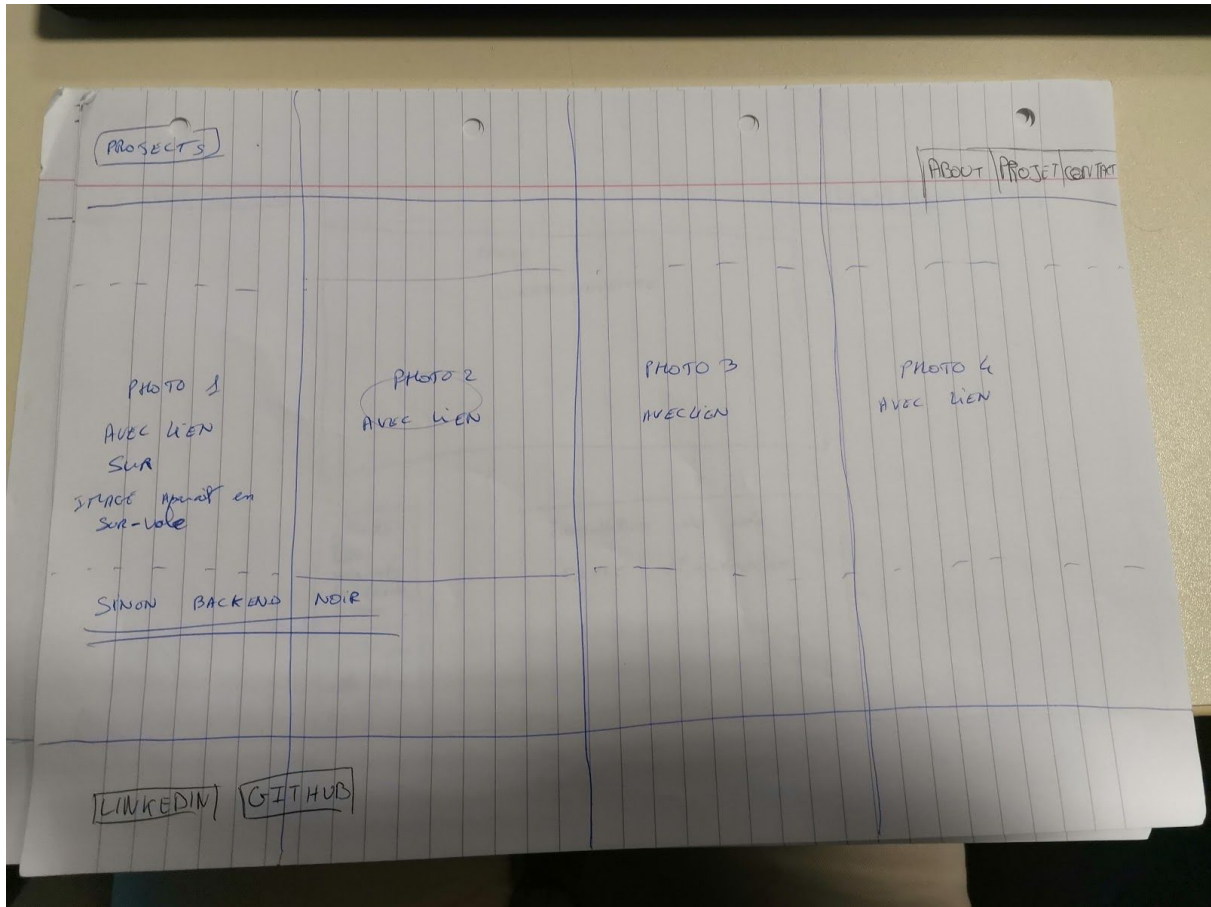 PROJECTS
ABOUT PROJET CONTACT
PHOTO 1
AVEC LIEN
SUR
IMAGE Apparait en
SUR-vole
PHOTO 2
AVEC LIEN
PHOTO 3
AVEC LIEN
PHOTO 4
AVEC LIEN
SINON BACKEND NOIR
LINKEDIN GITHUB